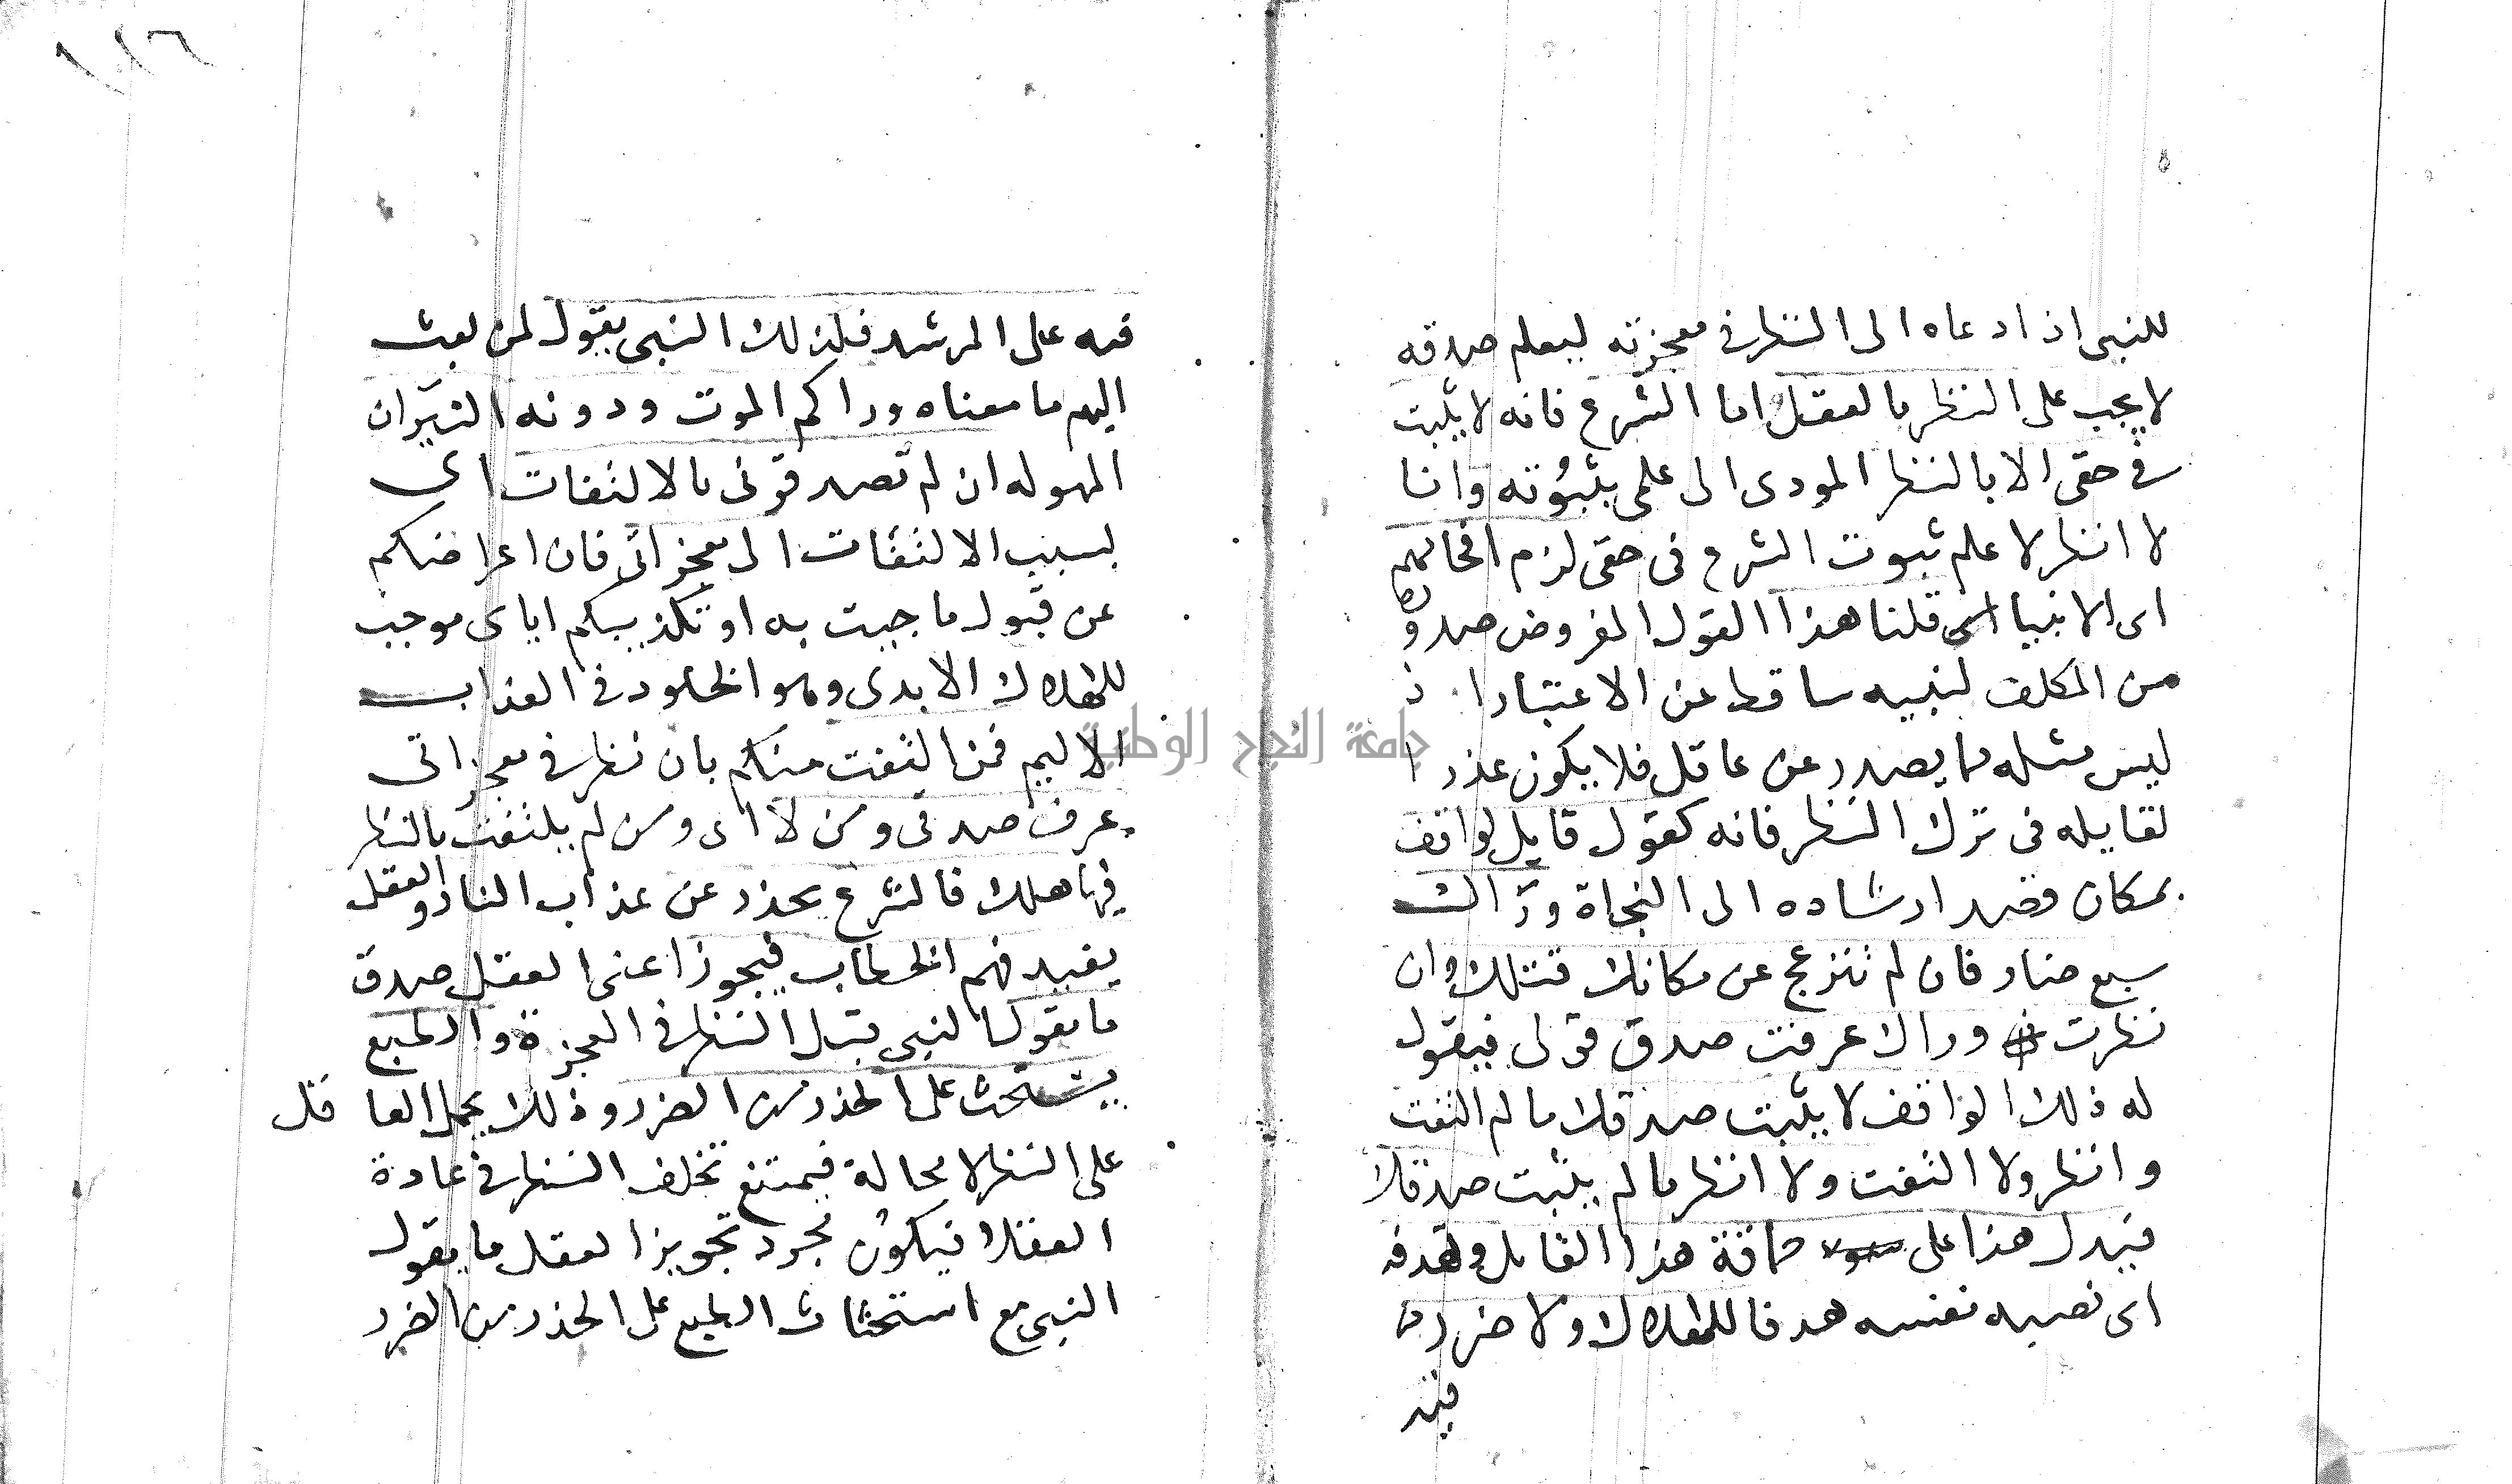 للنبى اذا دعاه الى النظر فى معجزته ليعلم صدقه
لا يجب على النظر بالعقل واما الشرع فانه لا يثبت
فى حقى الا بالنظر المودى الى علمى بثبوته وانا
لا انظر لا علم ثبوت الشرع فى حقى لزم افحامهم
اى الانبيا قلنا هذا القول المفروض صدوره
من المكلف لنبيه ساقط عن الاعتبار اذ
ليس مثله مما يصدر عن عاقل فلا يكون عذرا
لقايله فى ترك النظر فانه كقول قايل لواقف
بمكان قصد ارشاده الى النجاة وراك
سبع ضار فان لم تنزعج عن مكانك قتلك وان
نظرت وراك عرفت صدق قولى فيقول
له ذلك الواقف لا يثبت صدقك ما لم التفت
وانظر ولا التفت ولا انظر ما لم يثبت صدقك
فيدل هذا على حماقة هذا القايل وتهدفه
اى نصبه نفسه هدفا للهلاك ولا ضرر
فيه
١١٦
فيه على المرشد فلذلك النبى يقول لمن بعث
اليهم ما معناه وراكم الموت ودونه النيران
المهوله ان لم تصدقونى بالالتفات اى
بسبب الالتفات الى معجزاتى فان اعراضكم
عن قبول ما جيت به او تكذيبكم اياى موجب
للهلاك الابدى وهو الخلود فى العذاب
الاليم فمن التفت منكم بان نظر فى معجزاتى
عرف صدقى ومن لا اى ومن لم يلتفت بالنظر
فيها هلك فالشرع يحذر عن عذاب النار والعقل
يفيد فهم الخطاب فيجوز اعنى العقل صدق
ما يقول النبى قبل النظر فى المعجزة والطبع
يستحث على الحذر من الضرر وذلك يحمل العاقل
على النظر لا محالة فيمتنع تخلف النظر فى عادة
العقلا فيكون مجرد تجويز العقل ما يقول
النبى مع استحثاث الطبع على الحذر من الضرر
جامعة النجاح الوطنية